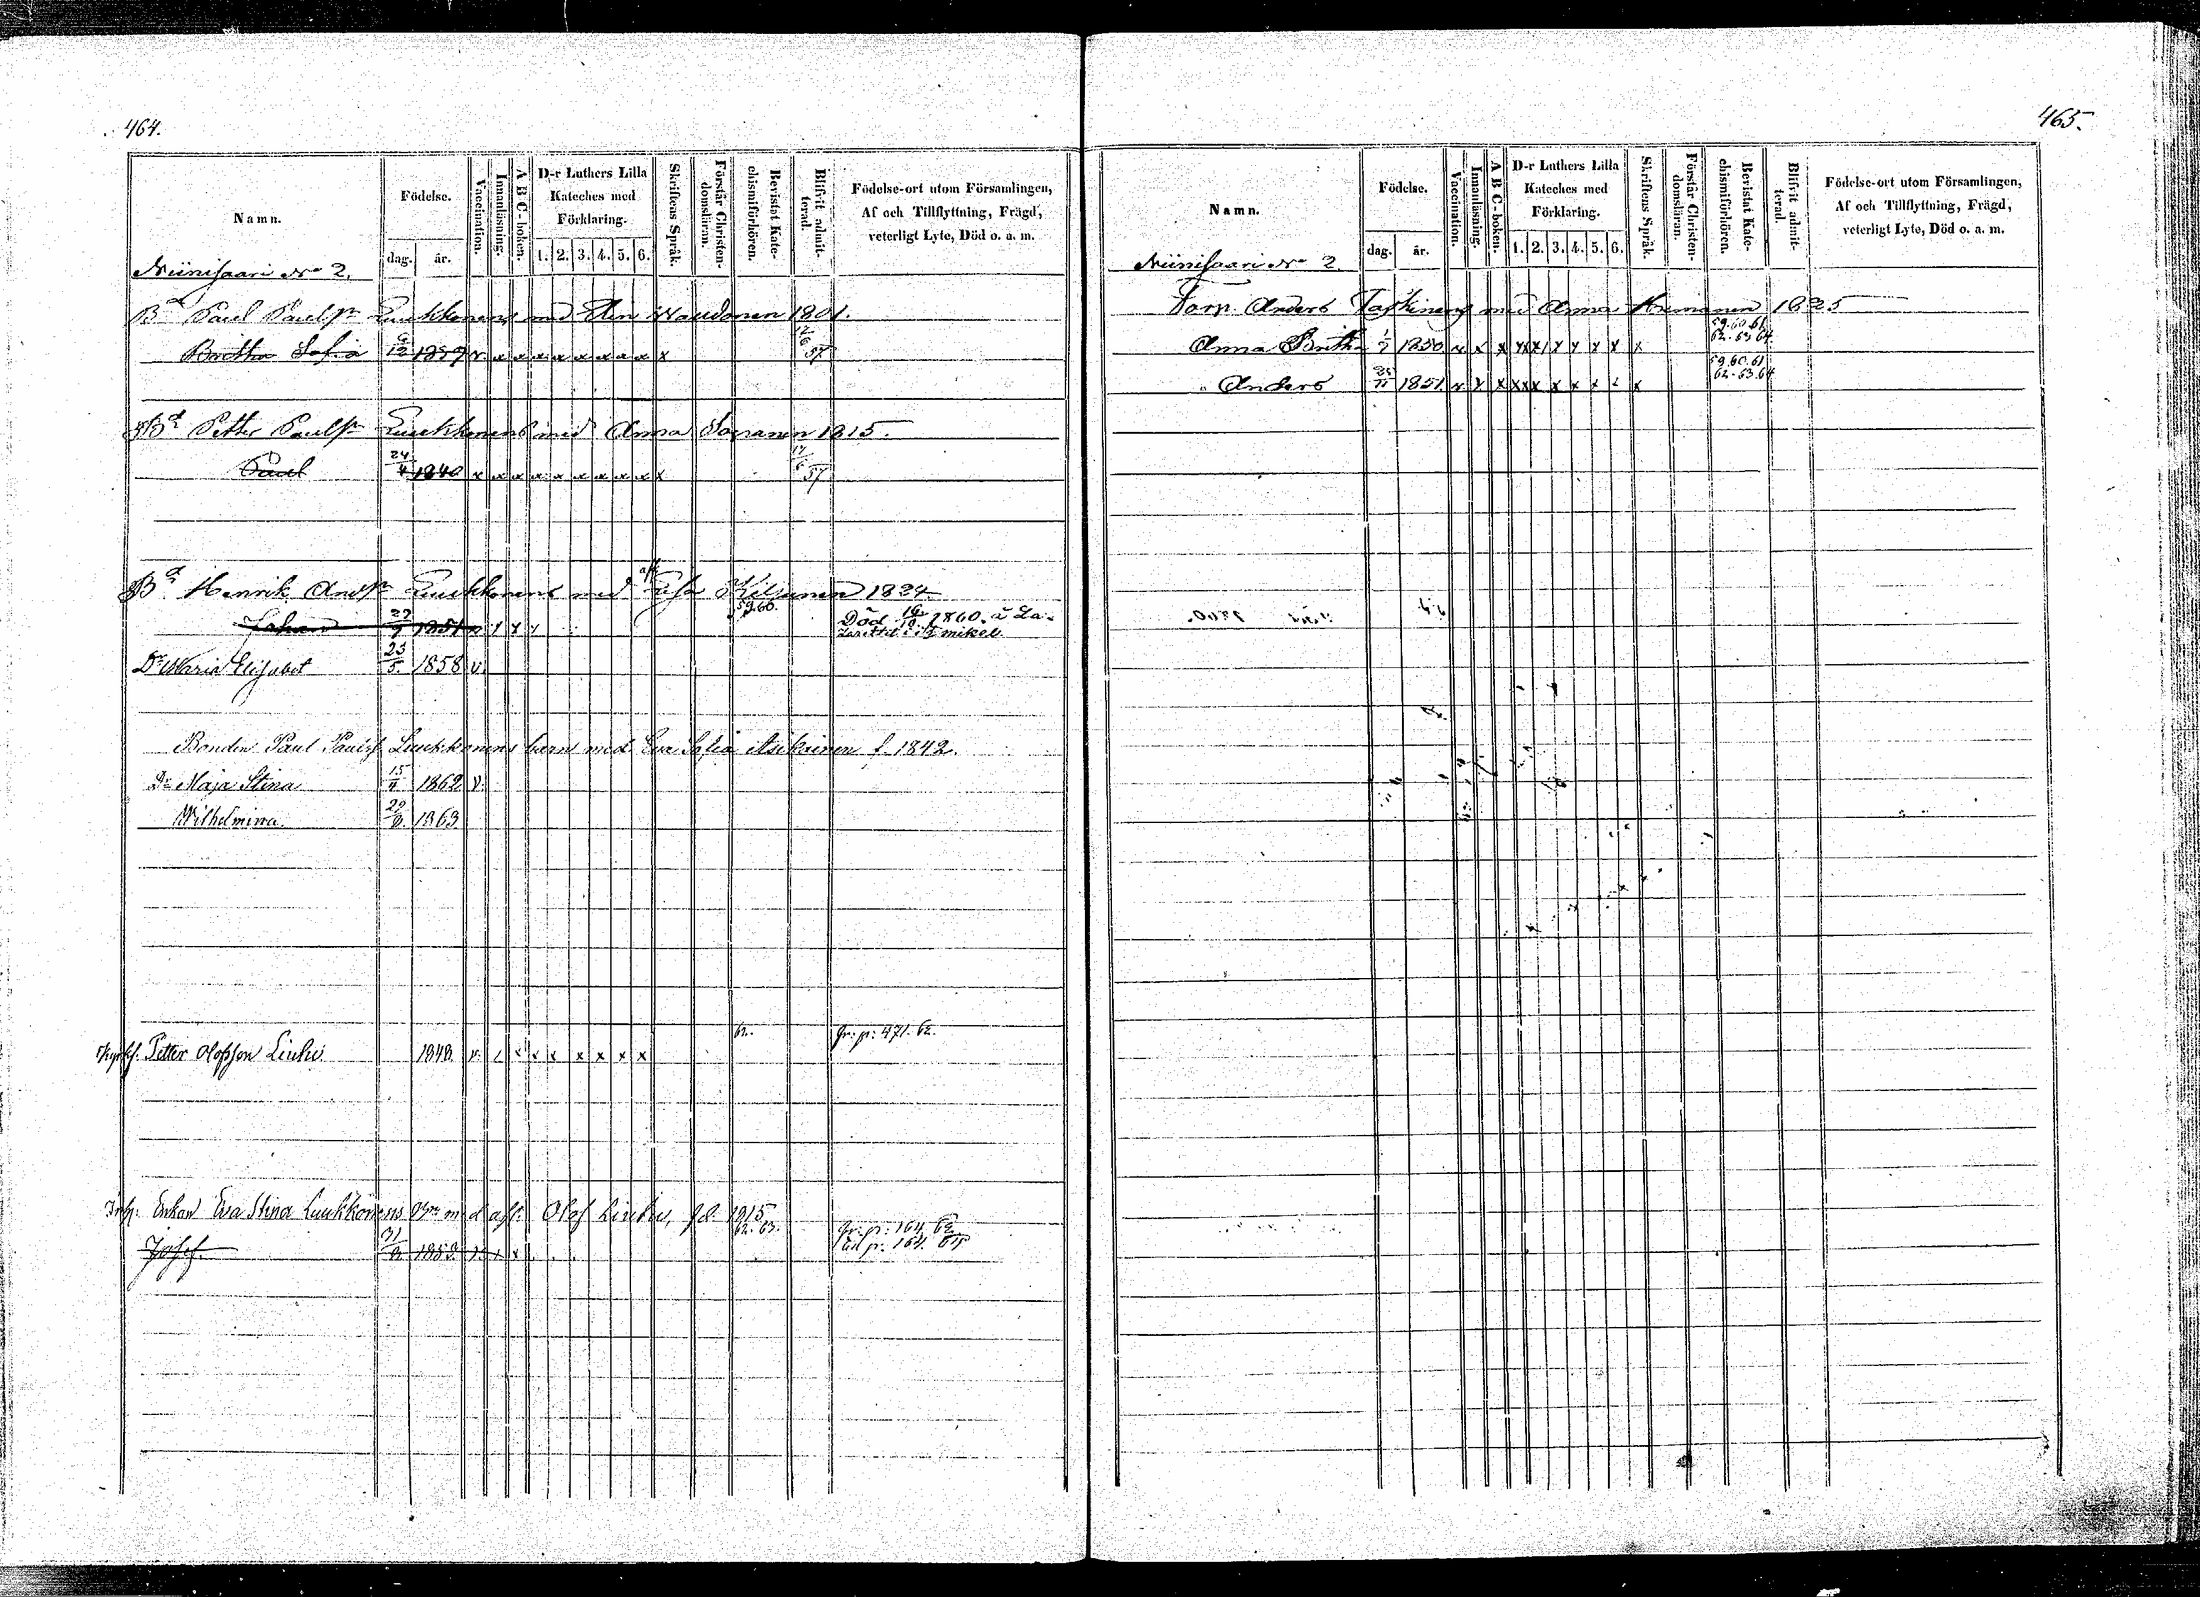 464.
Namn.
Födelse.
dag. år.
Vaccination.
Innanläsning.
A B C-boken.
D-r Luthers Lilla
Kateches med
Förklaring.
1. 2. 3. 4. 5. 6.
Skriftens Språk.
Förstår Christen-
domsläran.
Bevistat Kate-
chismiförhören.
Blifvit admit-
terad.
Födelse-ort utom Församlingen,
Af och Tillflyttning, Frägd,
veterligt Lyte, Död o. a. m.
Niinisaari No 2.
Bd Paul Paulsn Luukkonens med Elin 1801.
Britha Sofia 12 x x x x x x x x x 57
Bd Petter Paulsn Luukkonens med Anna 1815.
Paul 24/4 1840 x x x x x x x x x x 57
Bd Henrik Andsn Luukkonens med Kiljunen 1824
Johan 1851 59.60. Död 1860. å La-
zarettet i St mikel.
Dr Maria Elisabet 23/5. 1858 v.
Bonden Paul Paulss. Luukkonens barn med Eva Sofia Asikainen f. 1842.
Dr Maja Stina 15/4 1862 v.
Wilhelmina 1863
Petter Olofsson Liuku 1848. 62. fr. p: 471. 62.
Inh. Enkan Eva Stina Luukkonens med afl. Olof Liuku, fd. 1815
Josef. 31 1853. 62. 63. fr. p: 164. 62
till p: 164.
465.
Namn.
Födelse.
dag. år.
Vaccination.
Innanläsning.
A B C-boken.
D-r Luthers Lilla
Kateches med
Förklaring.
1. 2. 3. 4. 5. 6.
Skriftens Språk.
Förstår Christen-
domsläran.
Bevistat Kate-
chismiförhören.
Blifvit admit-
terad.
Födelse-ort utom Församlingen,
Af och Tillflyttning, Frägd,
veterligt Lyte, Död o. a. m.
Niinisaari No 2.
Torp. Anders Taskinens med Anna 1825
Anna Britha 1850 59.60.61
62.63.64
Anders 1851 59.60.61
62.63.64